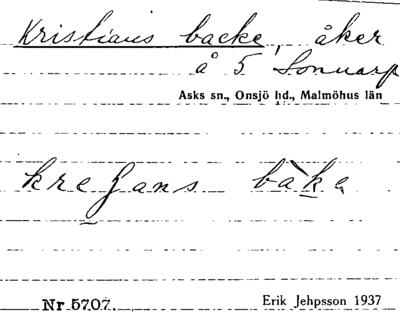 Kristians backe, åker
å 5 Sonnarp
Asks sn., Onsjö hd., Malmöhus län
kreʃans bàkə
Nr 5707. Erik Jehpsson 1937